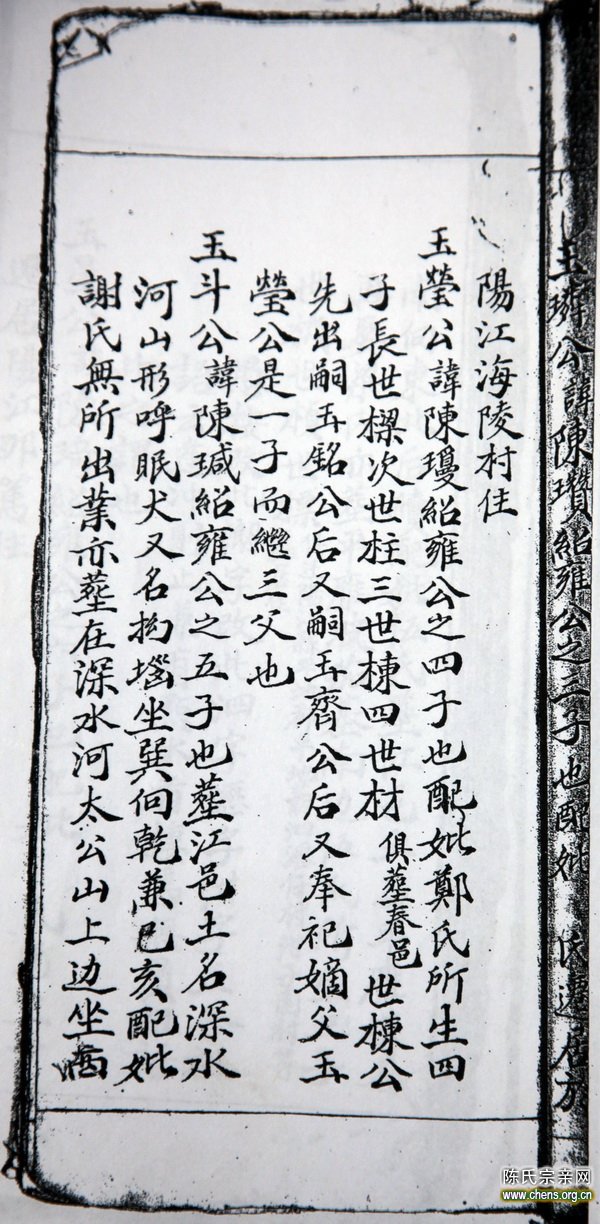 玉璘公諱陳瓚紹雍公之三子也配妣 氏遷居於
陽江海陵村住
玉瑩公諱陳瓊紹雍公之四子也配妣鄭氏所生四
子長世樑次世柱三世棟四世材 俱塟春邑 世棟公
先出嗣玉銘公后又嗣玉齊公后又奉祀嫡父玉
瑩公是一子而繼三父也
玉斗公諱陳瑊紹雍公之五子也塟江邑土名深水
河山形呼眠犬又名拗堖坐巽向乾兼巳亥配妣
謝氏無所出葉亦塟在深水河太公山上边坐
陈氏宗亲网
www.chens.org.cn